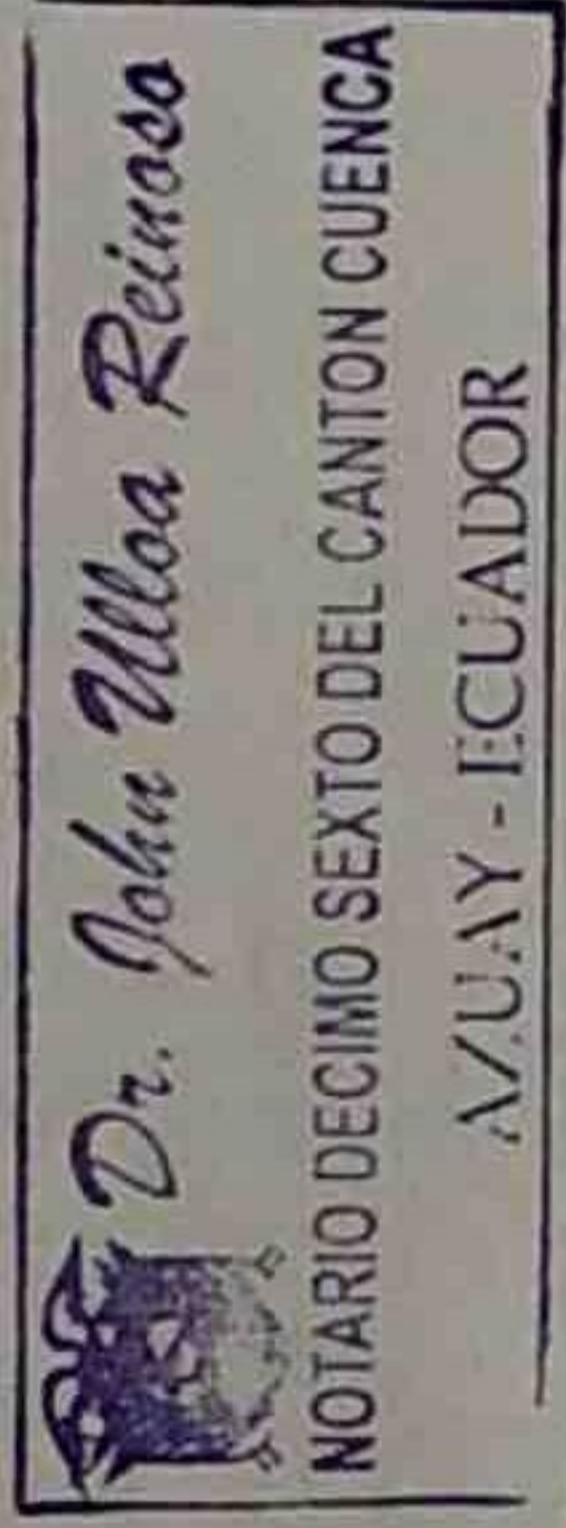 Dr. John Ulloa Reinoso
NOTARIO DECIMO SEXTO DEL CANTON CUENCA
AZUAY - ECUADOR